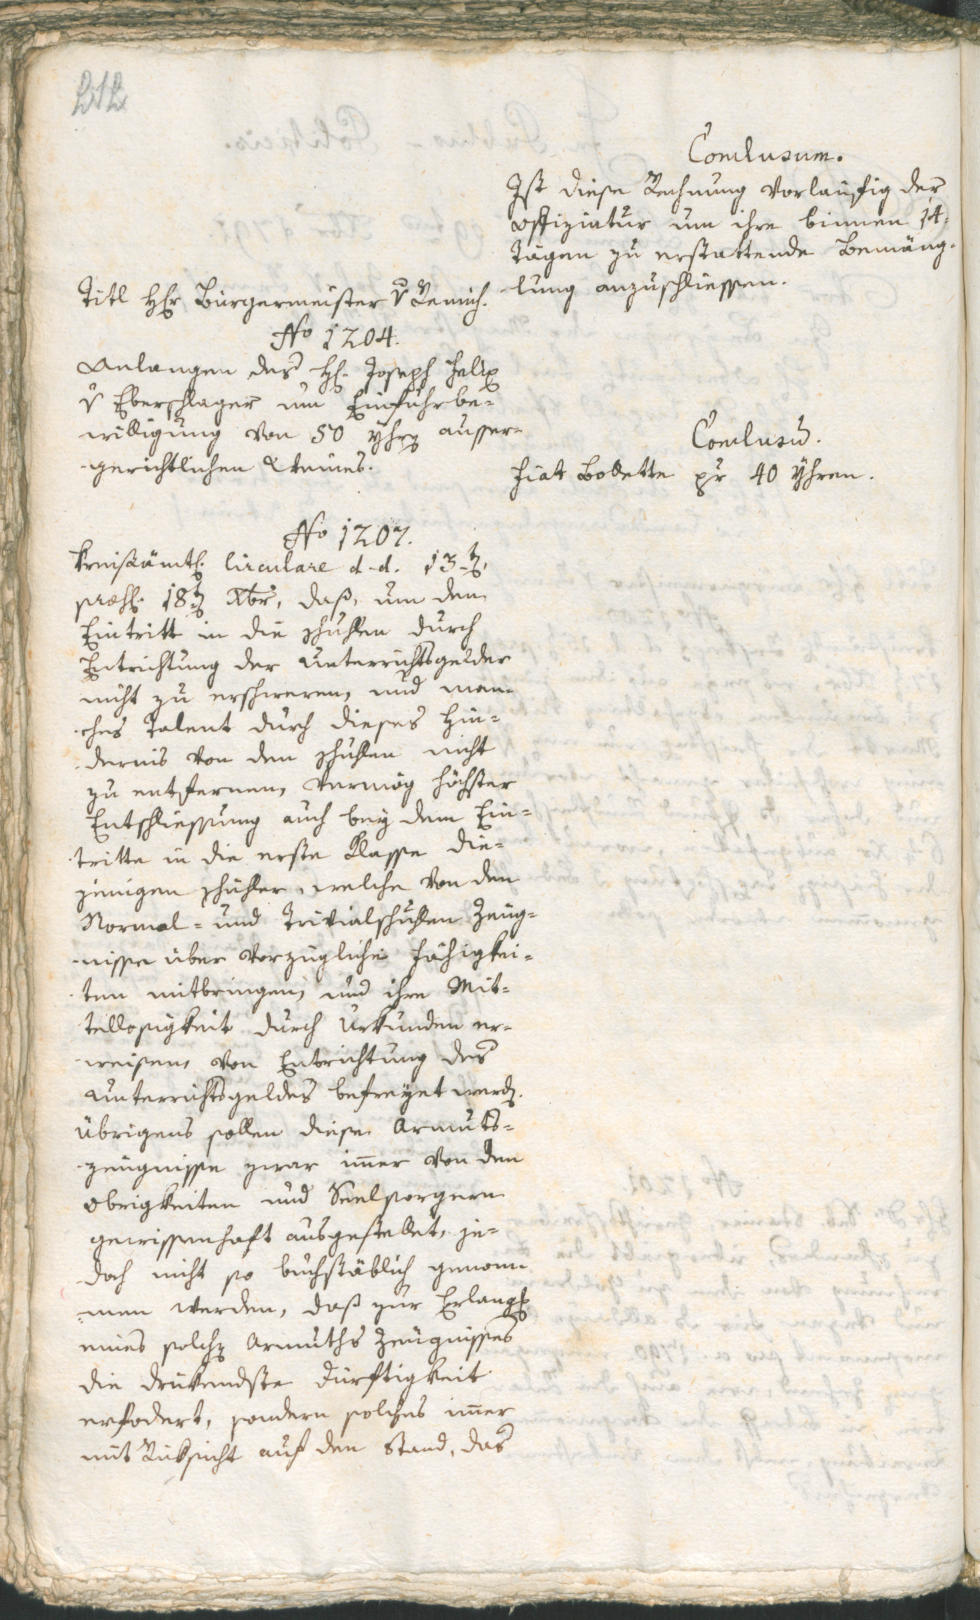 212
Conclusum.
Ist diese Rechnung vorläufig der
Offiziatur um ihre binnen 14.
Tägen zu erstattende Bemäng-
lung anzuschliessen.
Titl Hhr Bürgermeister v
No 1204.
Anlangen des H. Joseph Felix
v Eberschlager um Einfuhrbe-
willigung von 50 Yhrn ausser-
gerichtlichen Weines.
Conclusū.
Fiat Bollette pr 40 Yhren.
No 1207.
Kreisämtl. Circulare d. d. 13t.
praes. 18t Xbr, daß, um den
Eintritt in die Schullen durch
Entrichtung der Unterrichtsgelder
nicht zu erschweren, und man-
ches Talent durch dieses Hin-
dernis von den Schullen nicht
zu entfernen, vermög höchster
Entschliessung auch bey dem Ein-
tritte in die erste Klasse die-
jenigen Schühler, welche von den
Normal- und Trivialschullen Zeug-
nisse über vorzügliche Fähigkei-
ten mitbringen, und ihre Mit-
tellosigkeit durch Urkunden er-
weisen, von Entrichtung des
Unterrichtsgeldes befreyet werd.
Übrigens sollen diese Armuts-
zeugnisse zwar im̄er von den
Obrigkeiten und Seelsorgern
gewissenhaft ausgestellet, je-
doch nicht so buchstäblich genom
men werden, daß zur Erlangg
eines solchen Armuths Zeugnisses
die drükendste Dürftigkeit
erfodert, sondern solches im̄er
mit Rüksicht auf den Stand, das